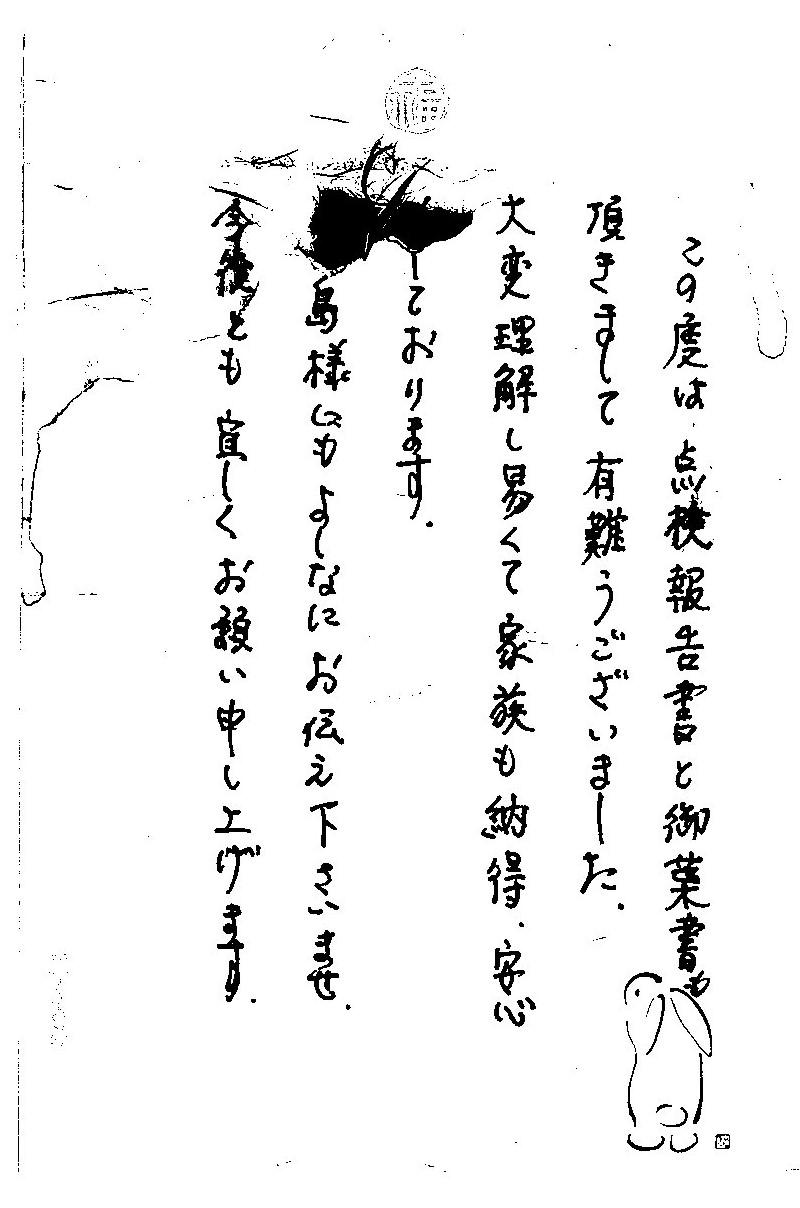 福
この度は、点検報告書と御葉書も
頂きまして有難うございました。
大変理解し易くて家族も納得、安心
しております。
島様にもよしなにお伝え下さいませ。
今後とも宜しくお願い申し上げます。